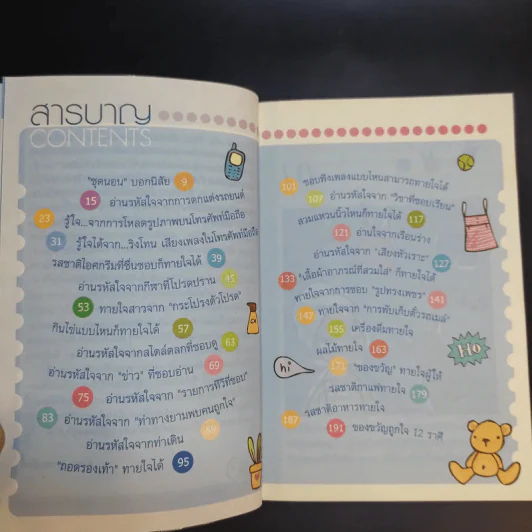 สารบาญ
CONTENTS
"ชุดนอน" บอกนิสัย 9
15 อ่านรหัสใจจากการตกแต่งรถยนต์
23 รู้ใจ...จากการโหลดรูปภาพบนโทรศัพท์มือถือ
31 รู้ใจได้จาก...ริงโทน เสียงเพลงในโทรศัพท์มือถือ
รสชาติไอศกรีมที่ชื่นชอบก็ทายใจได้ 39
อ่านรหัสใจจากกีฬาที่โปรดปราน 45
53 ทายใจสาวจาก "กระโปรงตัวโปรด"
กินไข่แบบไหนก็ทายใจได้ 57
อ่านรหัสใจจากสไตล์ตลกที่ชอบดู 63
อ่านรหัสใจจาก "ข่าว" ที่ชอบอ่าน 69
75 อ่านรหัสใจจาก "รายการทีวีที่ชอบ"
83 อ่านรหัสใจจาก "ท่าทางยามพบคนถูกใจ"
อ่านรหัสใจจากท่าเดิน
"ถอดรองเท้า" ทายใจได้ 95
101 ชอบฟังเพลงแบบไหนสามารถทายใจได้
107 อ่านรหัสใจจาก "วิชาที่ชอบเรียน"
สวมแหวนนิ้วไหนก็ทายใจได้ 117
121 อ่านใจจากเรือนร่าง
อ่านรหัสใจจาก "เสียงหัวเราะ" 127
133 "เสื้อผ้าอาภรณ์ที่สวมใส่" ก็ทายใจได้
ทายใจจากการชอบ "รูปทรงเพชร" 141
147 ทายใจจาก "การพับเก็บตั๋วรถเมล์"
155 เครื่องดื่มทายใจ
ผลไม้ทายใจ 163
171 "ของขวัญ" ทายใจผู้ให้
รสชาติกาแฟทายใจ 179
187 รสชาติอาหารทายใจ
191 ของขวัญถูกใจ 12 ราศี
hi
Ho